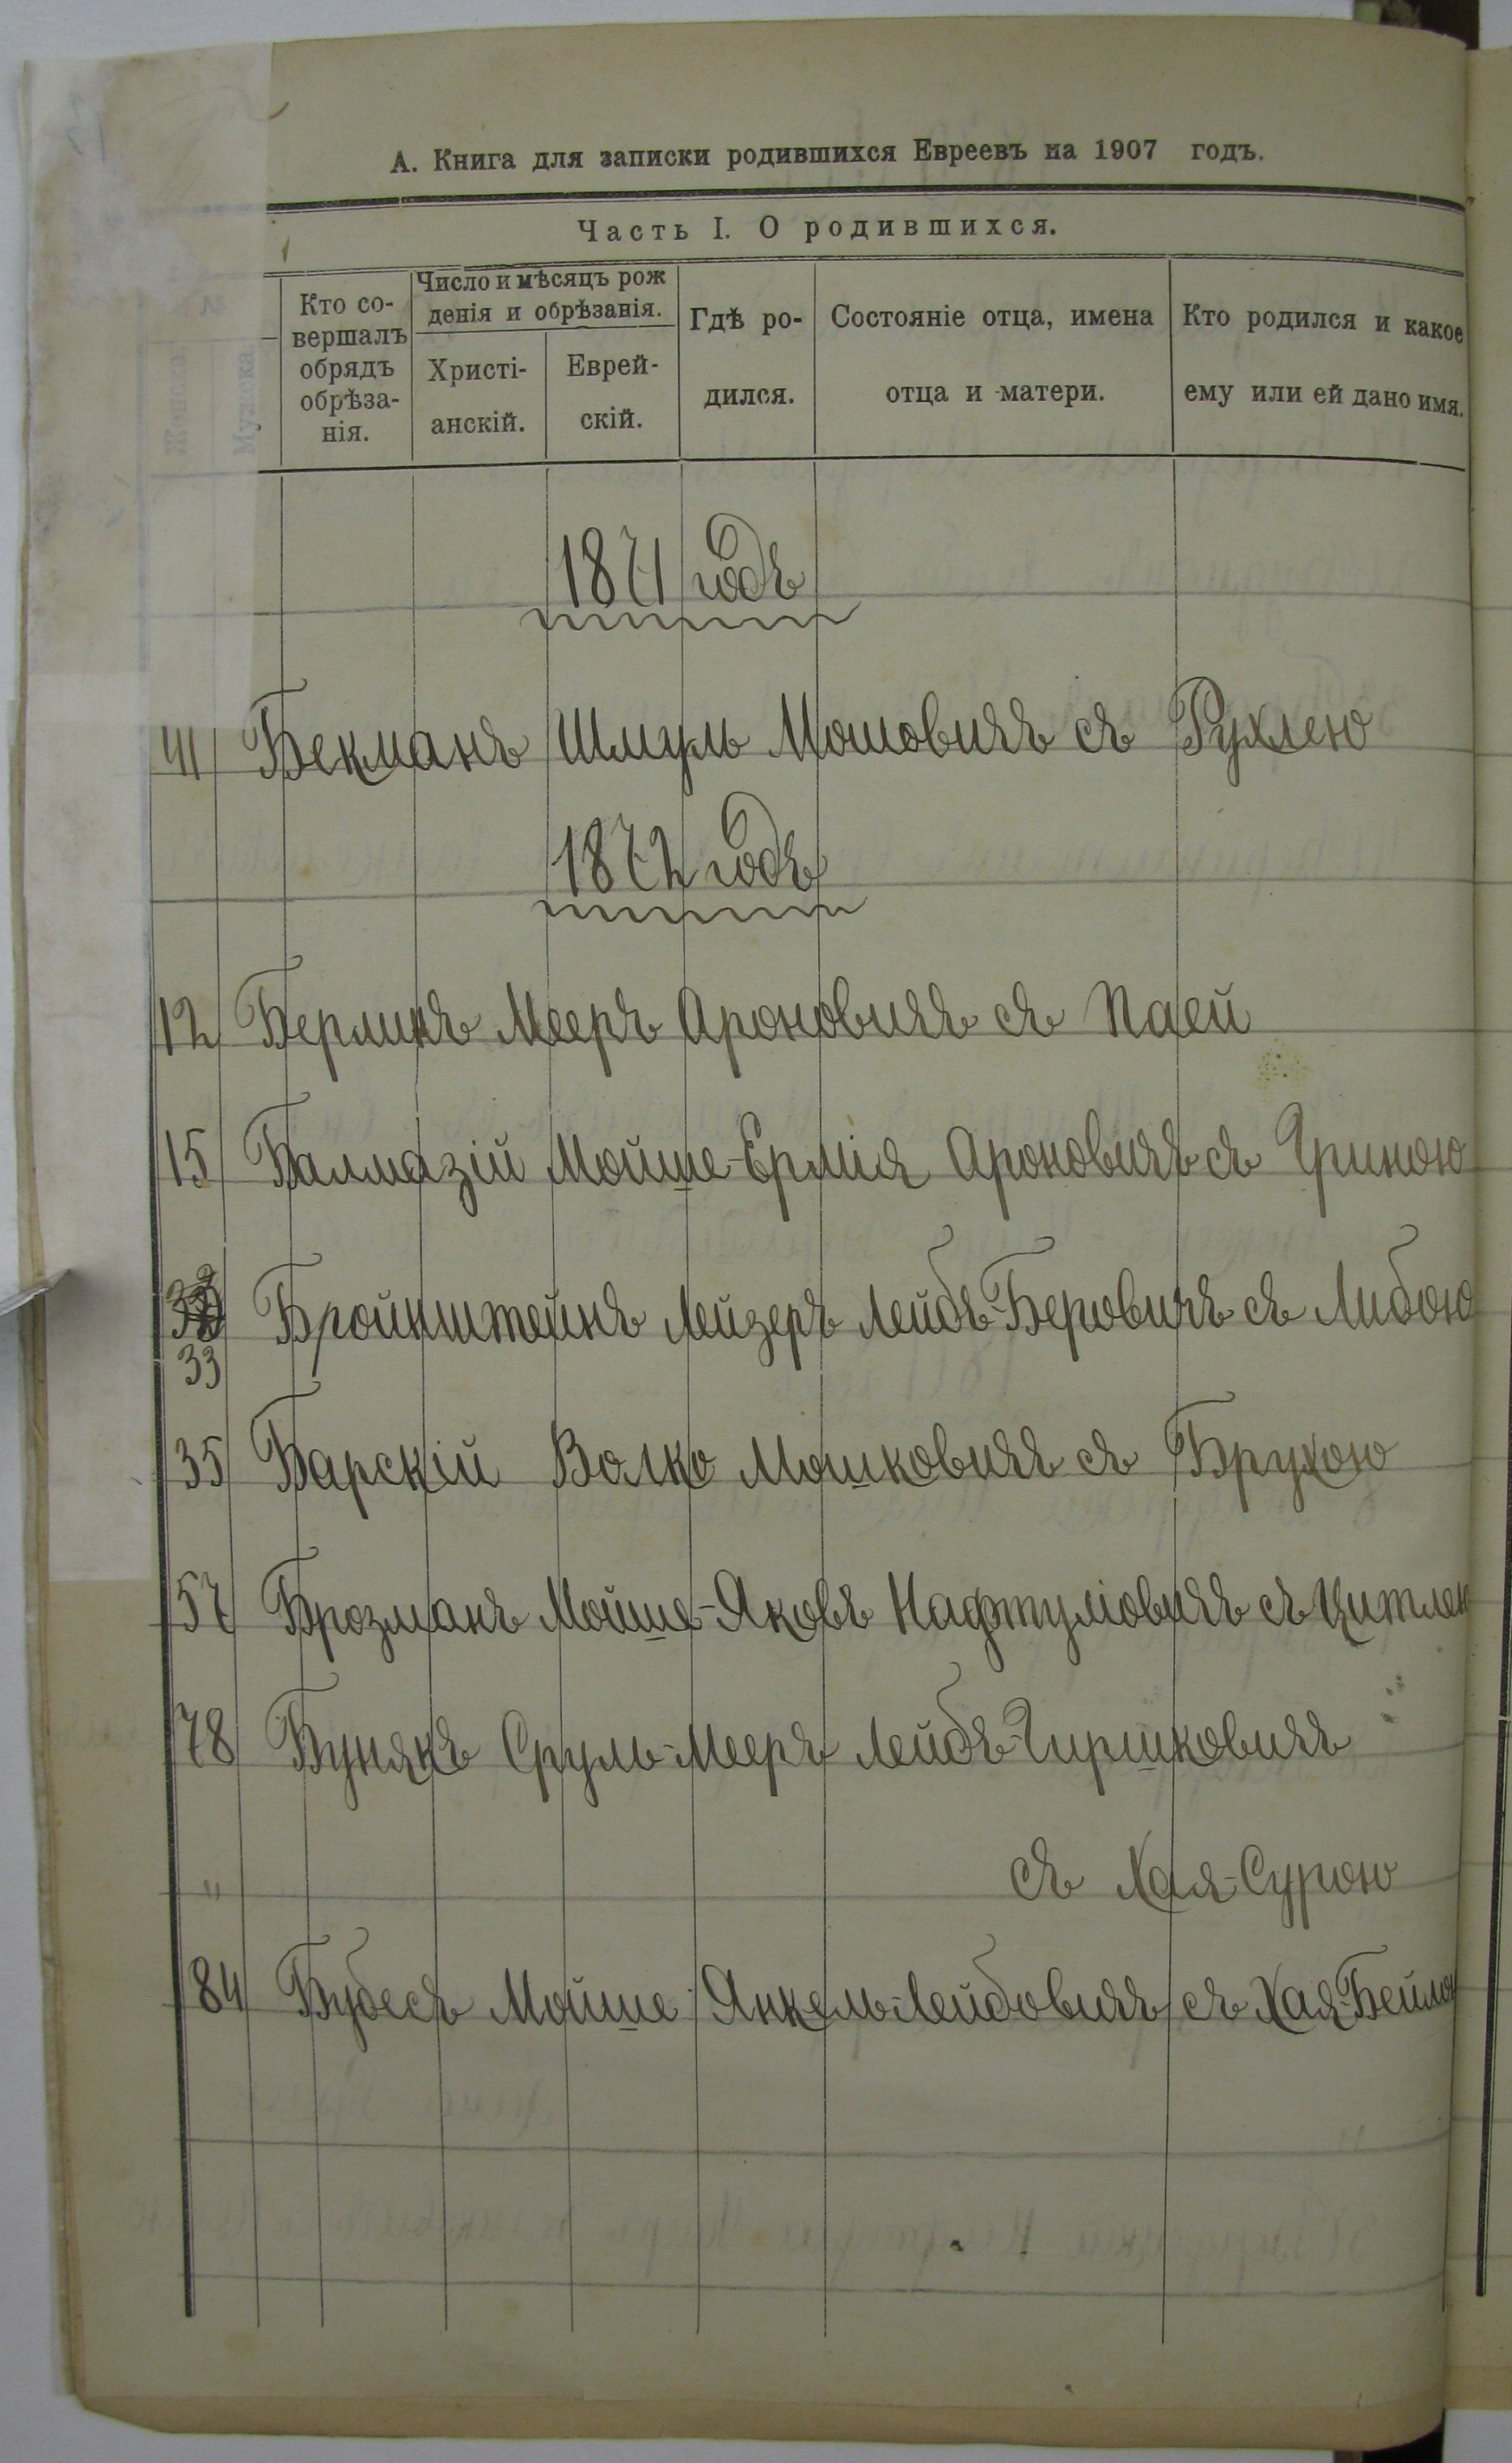 А. Книга для записки родившихся Евреевъ на 1907 годъ.
Часть I. О родившихся.
Женска
Мужска
Кто со-
вершалъ
обрядъ
обрѣза-
нія.
Число и мѣсяцъ рож
денія и обрѣзанія.
Христі-
анскій.
Еврей-
скій.
Гдѣ ро-
дился.
Состояніе отца, имена
отца и матери.
Кто родился и какое
ему или ей дано имя.
1871 годъ
41 Бекманъ Шмуль Мошовичъ съ Рухлею
1872 годъ
12 Берлинъ Мееръ Ароновичъ съ Паей
15 Балмазій Мойше-Ермія Ароновичъ съ Фриною
33 Бройнштейнъ Лейзеръ Лейбъ-Беровичъ съ Либою
35 Барскій Волко Мошковичъ съ Брухою
57 Брозманъ Мойше-Яковъ Нафтуліовичъ съ Цитлею
78 Бунякъ Сруль-Мееръ Лейбъ-Гиршковичъ
" съ Хая-Сурою
84 Будесъ Мойше Янкель-Лейбовичъ съ Хая-Бейлою